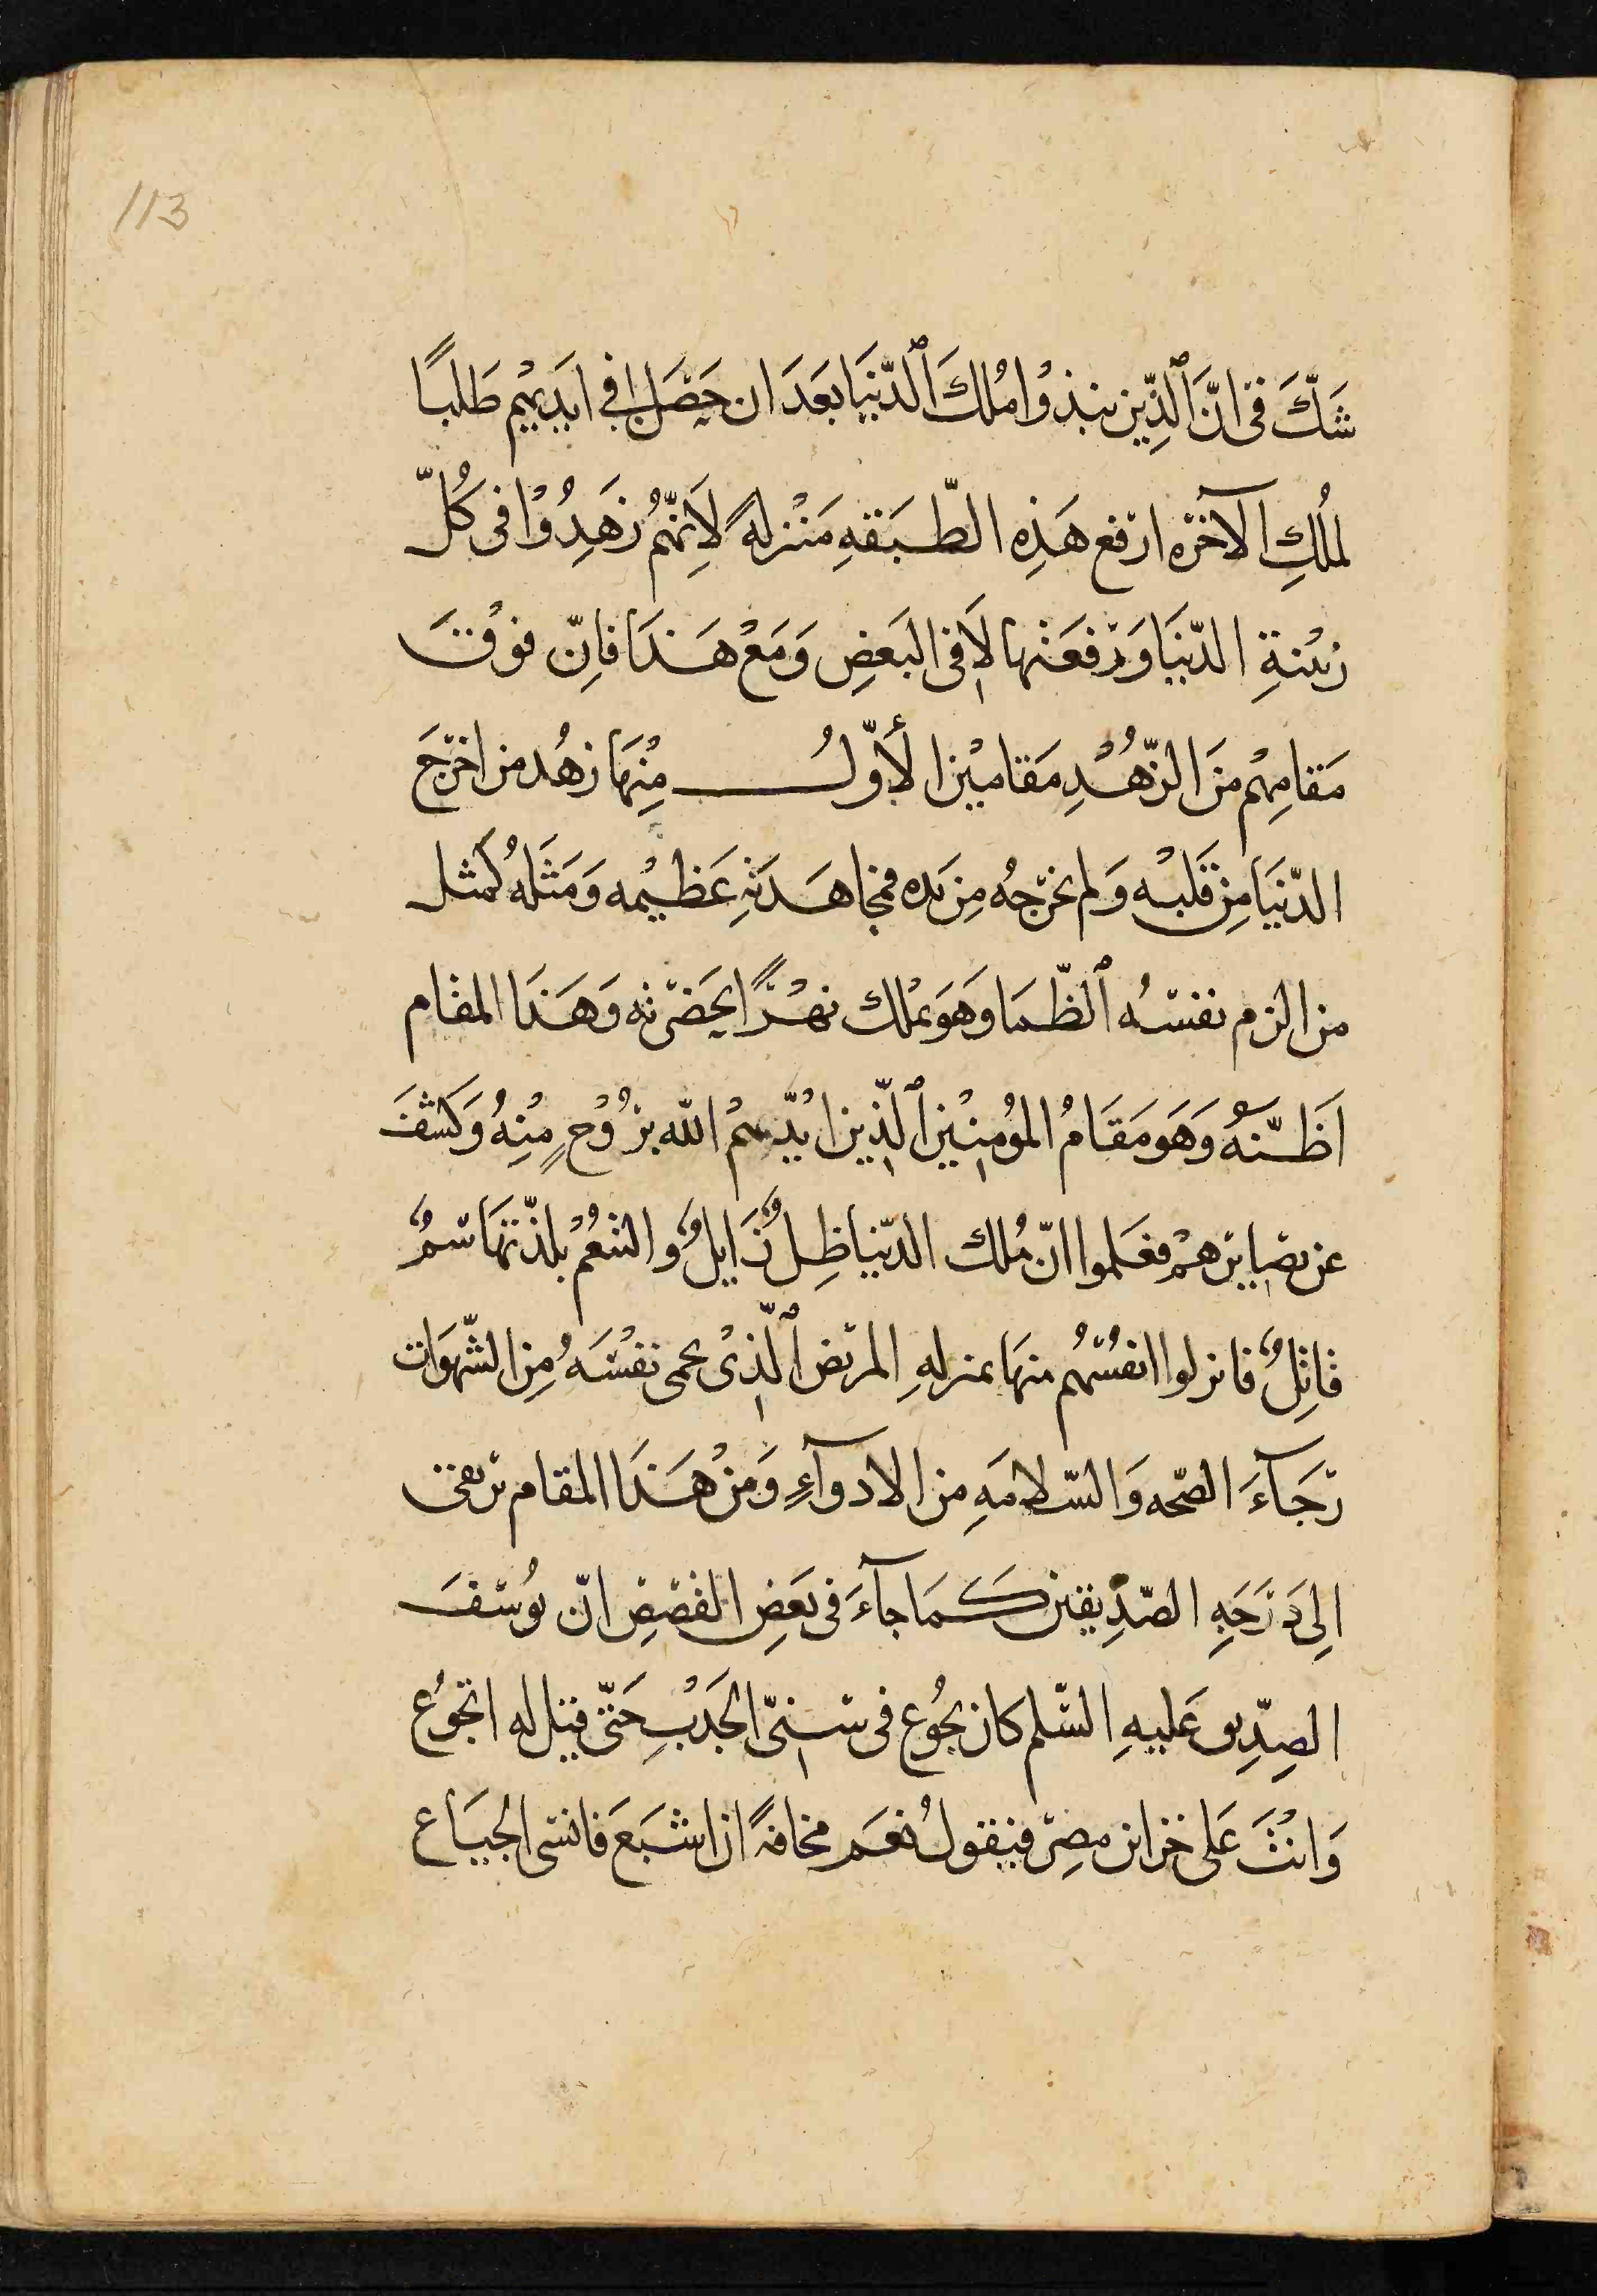 113
شَكَّ في انَّ ٱلذِّين نبذوْا مُلكَ ٱلدّنيَا بعَدَ ان حَصَل في ايَديهِم طَلبًا
لمُلكِ الآخرَه ارفع هَذِه الطّبَقهِ مَنْزلهً لاَنِهّمُ زهَدِوُا في كُلّ
زيْنةِ الدّنيَا وَرفعَتها لاَ في البَعَضِ وَمَعْ هَذا فاِنّ فوْقَ
مَقامِهْم منَ الزّهُدِ مَقاميْن الأوّلُ مِنْهَا زهُد من اخرَجَ
الدّنيَا مِن قَلبْه وَلم يخرجهُ مِن يَده فمجَاهَدَتهِ عَظيْمه وَمَثَلهُ كمَثل
من الزم نفسَهُ ٱلظّمَا وَهَوَ يمْلك نهْرًا بحَضرَته وَهَذا المقام
اَظنّهُ وَهَوَ مَقَامُ المؤمنِيْن ٱلذِّين ايّدْهمْ الله برُوْح مٍنِهُ وَكشفَ
عن بصَايرهمْ فعَلموا انّ مُلك الدّنيا ظِلٌ زَايلٌ والنّعمُ بلذّتهَا سَمٌ
قاتِلٌ فانزلوا انفُسَهُم منهَا بمنزلهِ المرَيض ٱلذّىْ يحمى نفسَهُ مِن الشّهوَات
رَجَآءَ الصّحه وَالسّلامَهِ من الادوآءِ وَمنْ هَذا المقام ترَتقى
الِى دَرَجَهِ الصّدِيقين كمَا جآءَ في بَعَضِ القصَصِ انّ يوُسفَ
الصِدّيق عَليهِ السّلم كان يجُوع في سنىّ الجَدْبِ حَتّى قيل له اتجوُع
وَانتْ عَلى خزاين مصِر فيَقولُ نعَم مخافهً ان اشبَعَ فانسَى الجيَاع